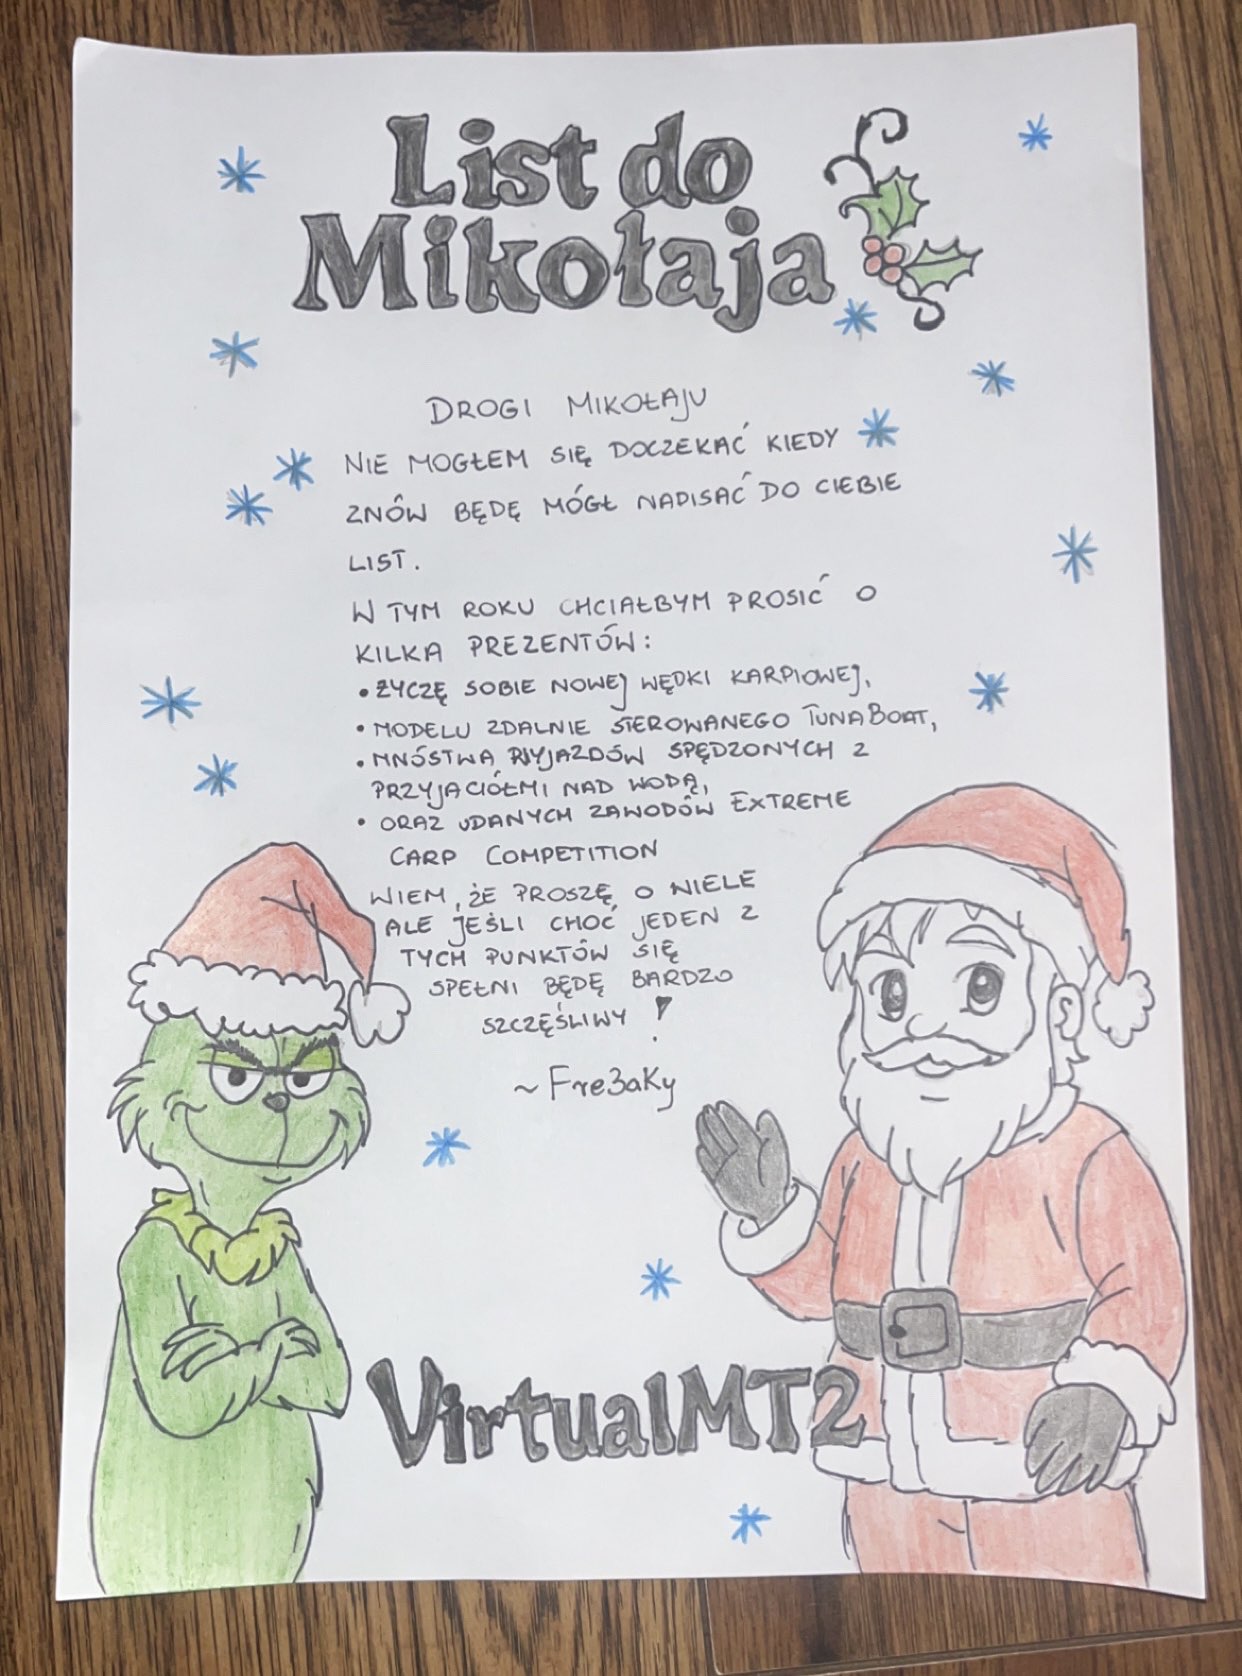 List do
Mikołaja
DROGI MIKOŁAJU
NIE MOGŁEM SIĘ DOCZEKAĆ KIEDY
ZNÓW BĘDĘ MÓGŁ NAPISAĆ DO CIEBIE
LIST.
W TYM ROKU CHCIAŁBYM PROSIĆ O
KILKA PREZENTÓW:
• ŻYCZĘ SOBIE NOWEJ WĘDKI KARPIOWEJ,
• MODELU ZDALNIE STEROWANEGO TUNABOAT,
• MNÓSTWA WYJAZDÓW SPĘDZONYCH Z
PRZYJACIÓŁMI NAD WODĄ,
• ORAZ UDANYCH ZAWODÓW EXTREME
CARP COMPETITION
WIEM, ŻE PROSZĘ O WIELE
ALE JEŚLI CHOĆ JEDEN Z
TYCH PUNKTÓW SIĘ
SPEŁNI BĘDĘ BARDZO
SZCZĘŚLIWY !
~ Fre3aKy
VirtualMT2